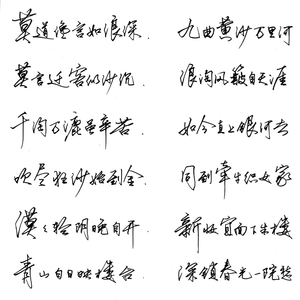 莫道谗言如浪深.
莫言迁客似沙沉.
千淘万漉虽辛苦.
吹尽狂沙始到金.
漠々轻阴晚自开.
青山白日映楼台.
九曲黄沙万里河
浪淘风簸自天涯
如今直上银河去
同到牵牛织女家
新妆宜面下朱楼
深锁春光一院愁